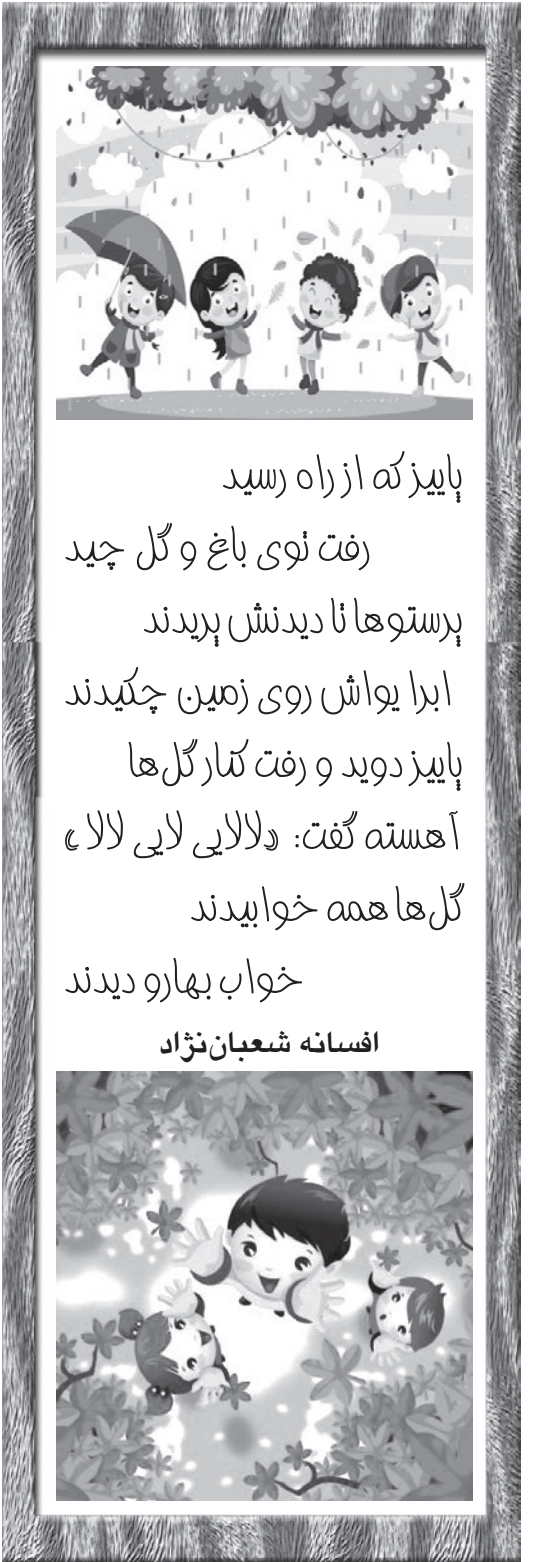 پاییز که از راه رسید
رفت توی باغ و گل چید
پرستوها تا دیدنش پریدند
ابرا یواش روی زمین چکیدند
پاییز دوید و رفت کنار گل‌ها
آهسته گفت: «لالایی لایی لالا»
گل‌ها همه خوابیدند
خواب بهارو دیدند
افسانه شعبان‌نژاد